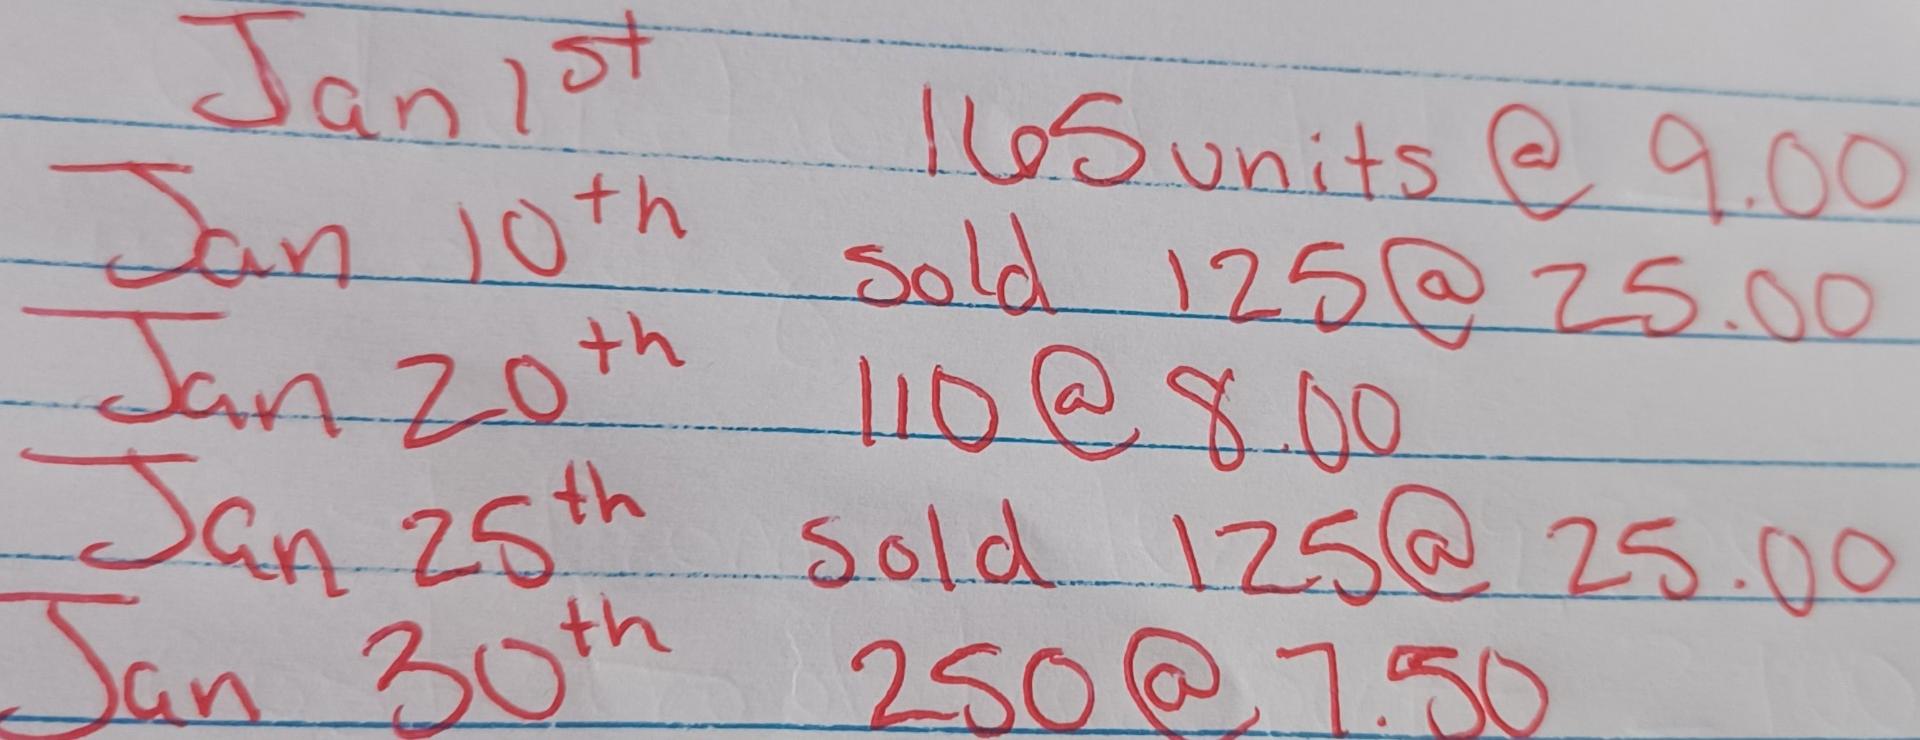 Jan 1st 165 units @ 9.00
Jan 10th sold 125 @ 25.00
Jan 20th 110 @ 8.00
Jan 25th sold 125 @ 25.00
Jan 30th 250 @ 7.50